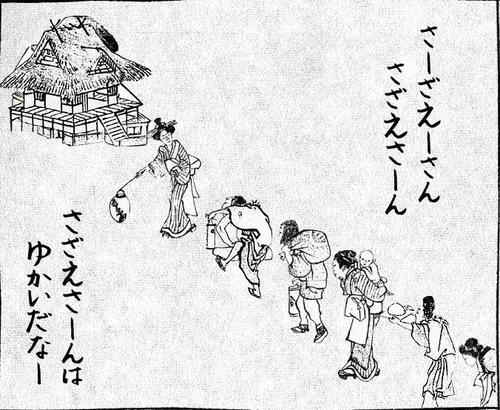 さーざえーさん
さざえさーん
さざえさーんは
ゆかいだなー